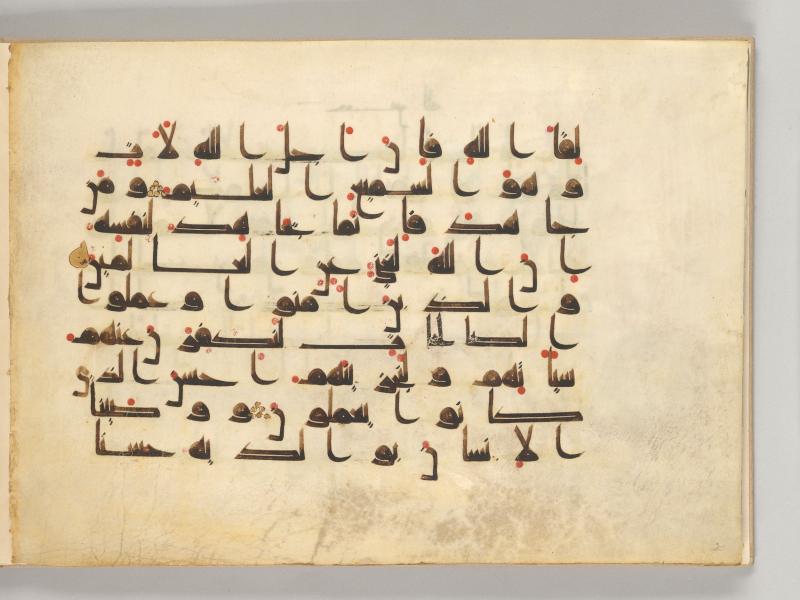 لقا الله فان اجل الله لات
وهو السميع العليم ومن
جاهد فانما يجاهد لنفسه
ان الله لغني عن العالمين
والذين امنوا وعملوا
الصالحات لنكفرن عنهم
سياتهم ولنجزينهم احسن الذي
كانوا يعملون ووصينا
الانسان بوالديه حسنا
2